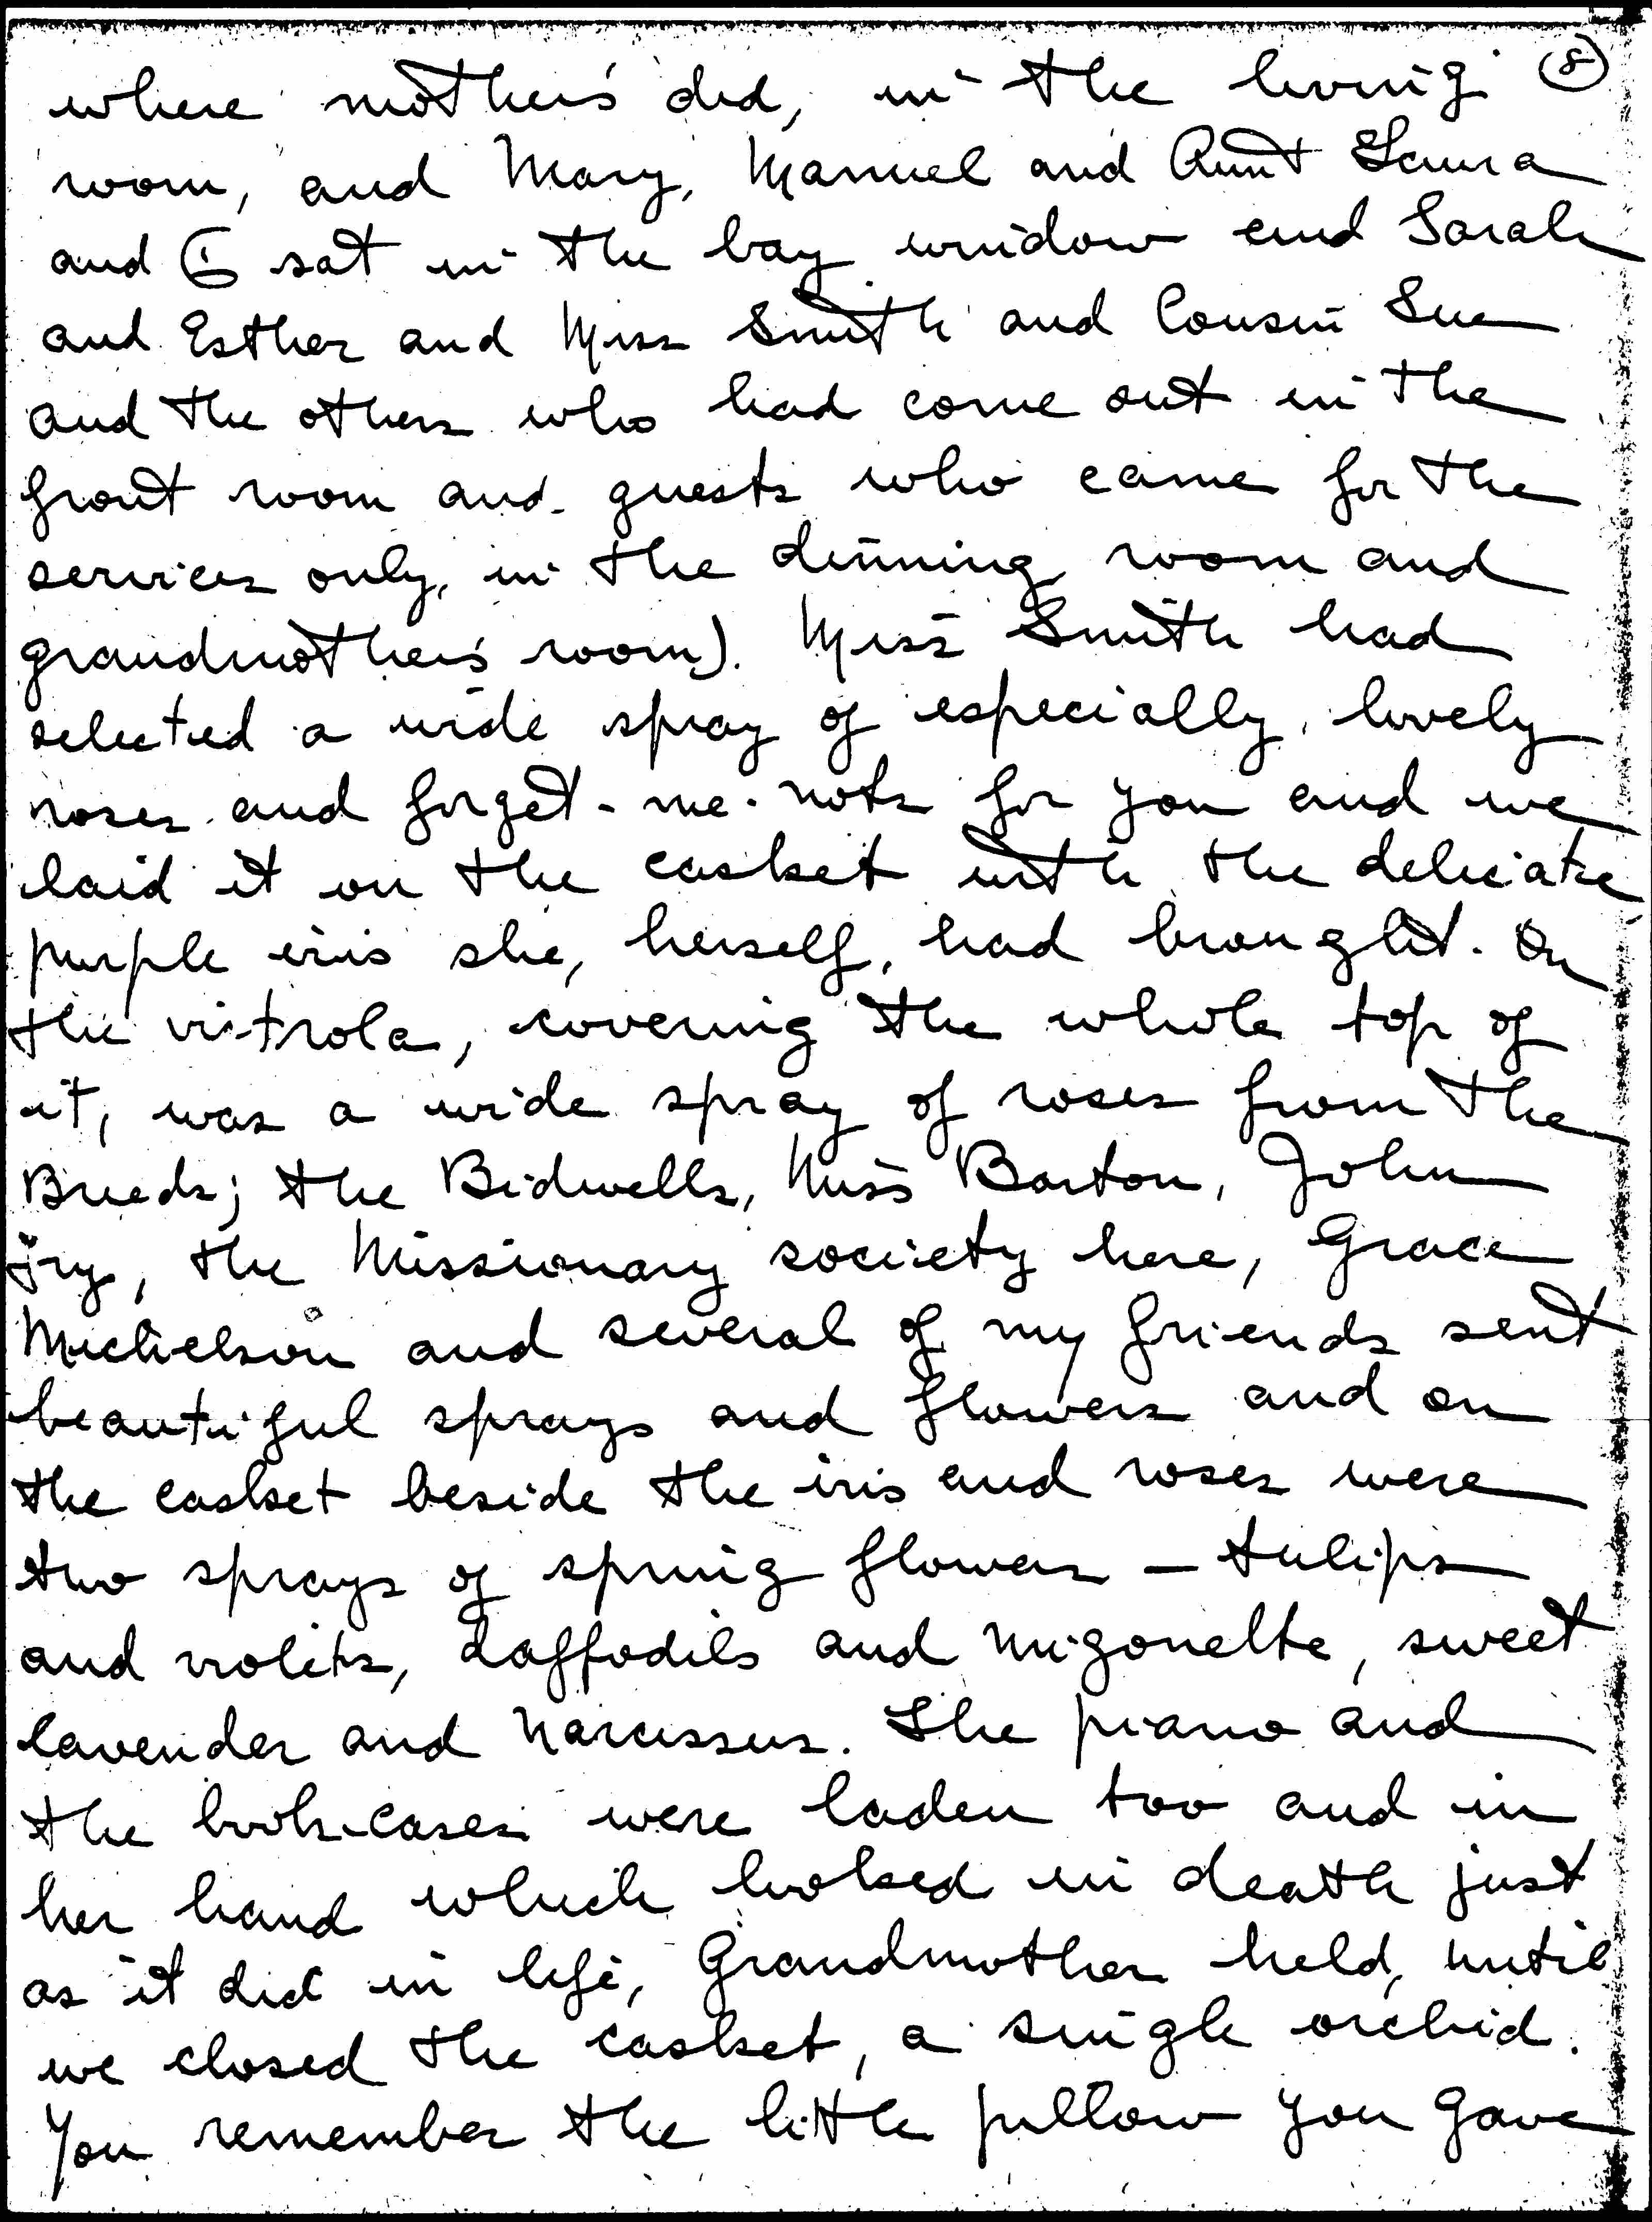 where mother's did, in the living (8)
room, and Mary, Manuel and Aunt Laura
and I sat in the bay window and Sarah
and Esther and Miss Smith and Cousin Sue
and the others who had come out in the
front room and guests who came for the
services only, in the dinning room and
grandmother's room). Miss Smith had
selected a wide spray of especially lovely
roses and forget-me-nots for you and we
laid it on the casket with the delicate
purple iris she, herself, had brought. On
the victrola, covering the whole top of
it, was a wide spray of roses from the
Breeds; the Bidwells, Miss Barton, John
Jry, the Missionary society here, Grace
Michelson and several of my friends sent
beautiful sprays and flowers and on
the casket beside the iris and roses were
two sprays of spring flowers — tulips
and violets, daffodils and migonette, sweet
lavender and narcissus. The piano and
the book-cases were laden too and in
her hand which looked in death just
as it did in life, Grandmother held, until
we closed the casket, a single orchid.
You remember the little pillow you gave